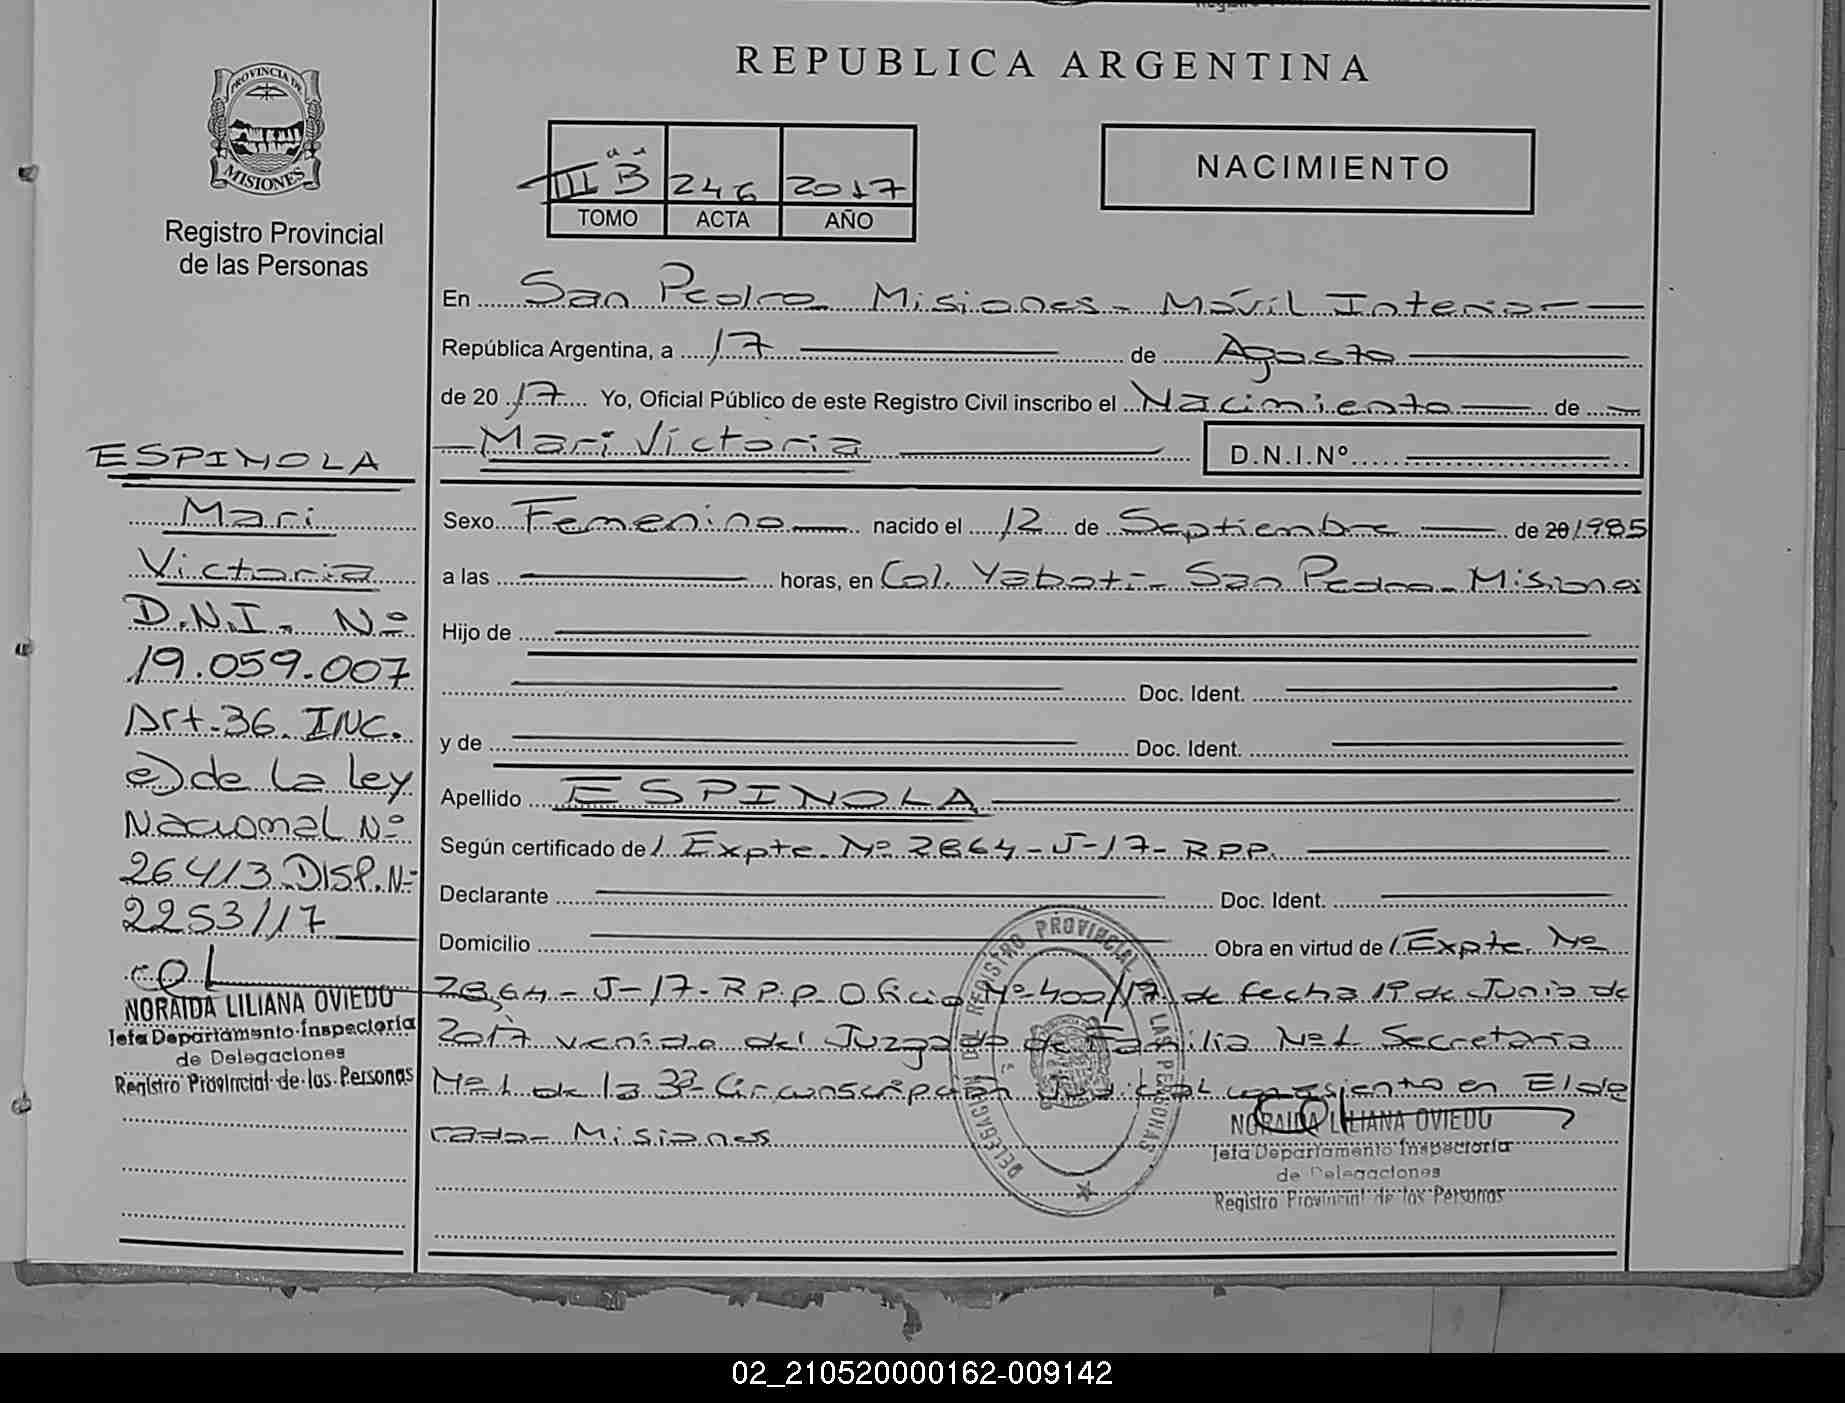 REPUBLICA ARGENTINA
PROVINCIA DE
MISIONES
Registro Provincial
de las Personas
III "B" 246 2017
TOMO ACTA AÑO
NACIMIENTO
En San Pedro Misiones - Móvil Interior
República Argentina, a 17 de Agosto
de 2017 Yo, Oficial Público de este Registro Civil inscribo el Nacimiento de
Mari Victoria D.N.I.Nº
Sexo Femenino nacido el 12 de Septiembre de 20 1985
a las horas, en Col. Yaboti - San Pedro - Misiones
Hijo de
Doc. Ident.
y de Doc. Ident.
Apellido ESPINOLA
Según certificado de / Expte. Nº 2864 - J - 17 - R.P.P.
Declarante Doc. Ident.
Domicilio Obra en virtud de / Expte. Nº
2864 - J - 17 - R.P.P. Oficio Nº 400/17 de fecha 19 de Junio de
2017 venido del Juzgado de Familia Nº 1 Secretaria
Nº 1 de la 3ª Circunscripción Judicial con asiento en Eldo
rado - Misiones
DELEGACION DEL REGISTRO PROVINCIAL DE LAS PERSONAS
NORAIDA LILIANA OVIEDO
Jefa Departamento Inspectoría
de Delegaciones
Registro Provincial de las Personas
ESPINOLA
Mari
Victoria
D.N.I. Nº
19.059.007
Art. 36. INC.
e) de la ley
Nacional Nº
26413. DISP. Nº
2253/17
NORAIDA LILIANA OVIEDO
Jefa Departamento Inspectoría
de Delegaciones
Registro Provincial de las Personas
02_210520000162-009142